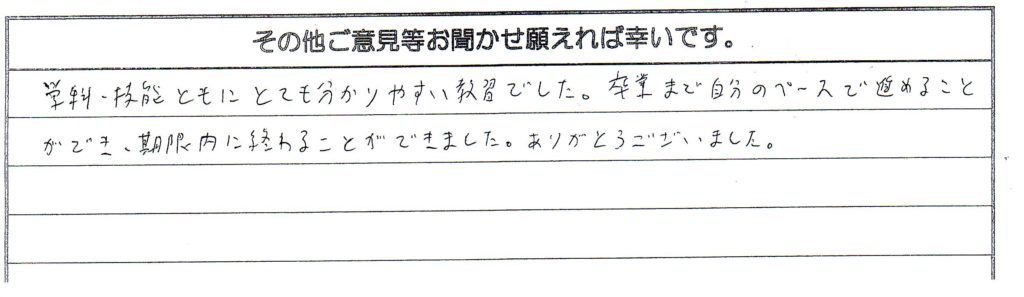 その他ご意見等お聞かせ願えれば幸いです。
学科・技能ともにとても分かりやすい教習でした。卒業まで自分のペースで進めること
ができ、期限内に終わることができました。ありがとうございました。